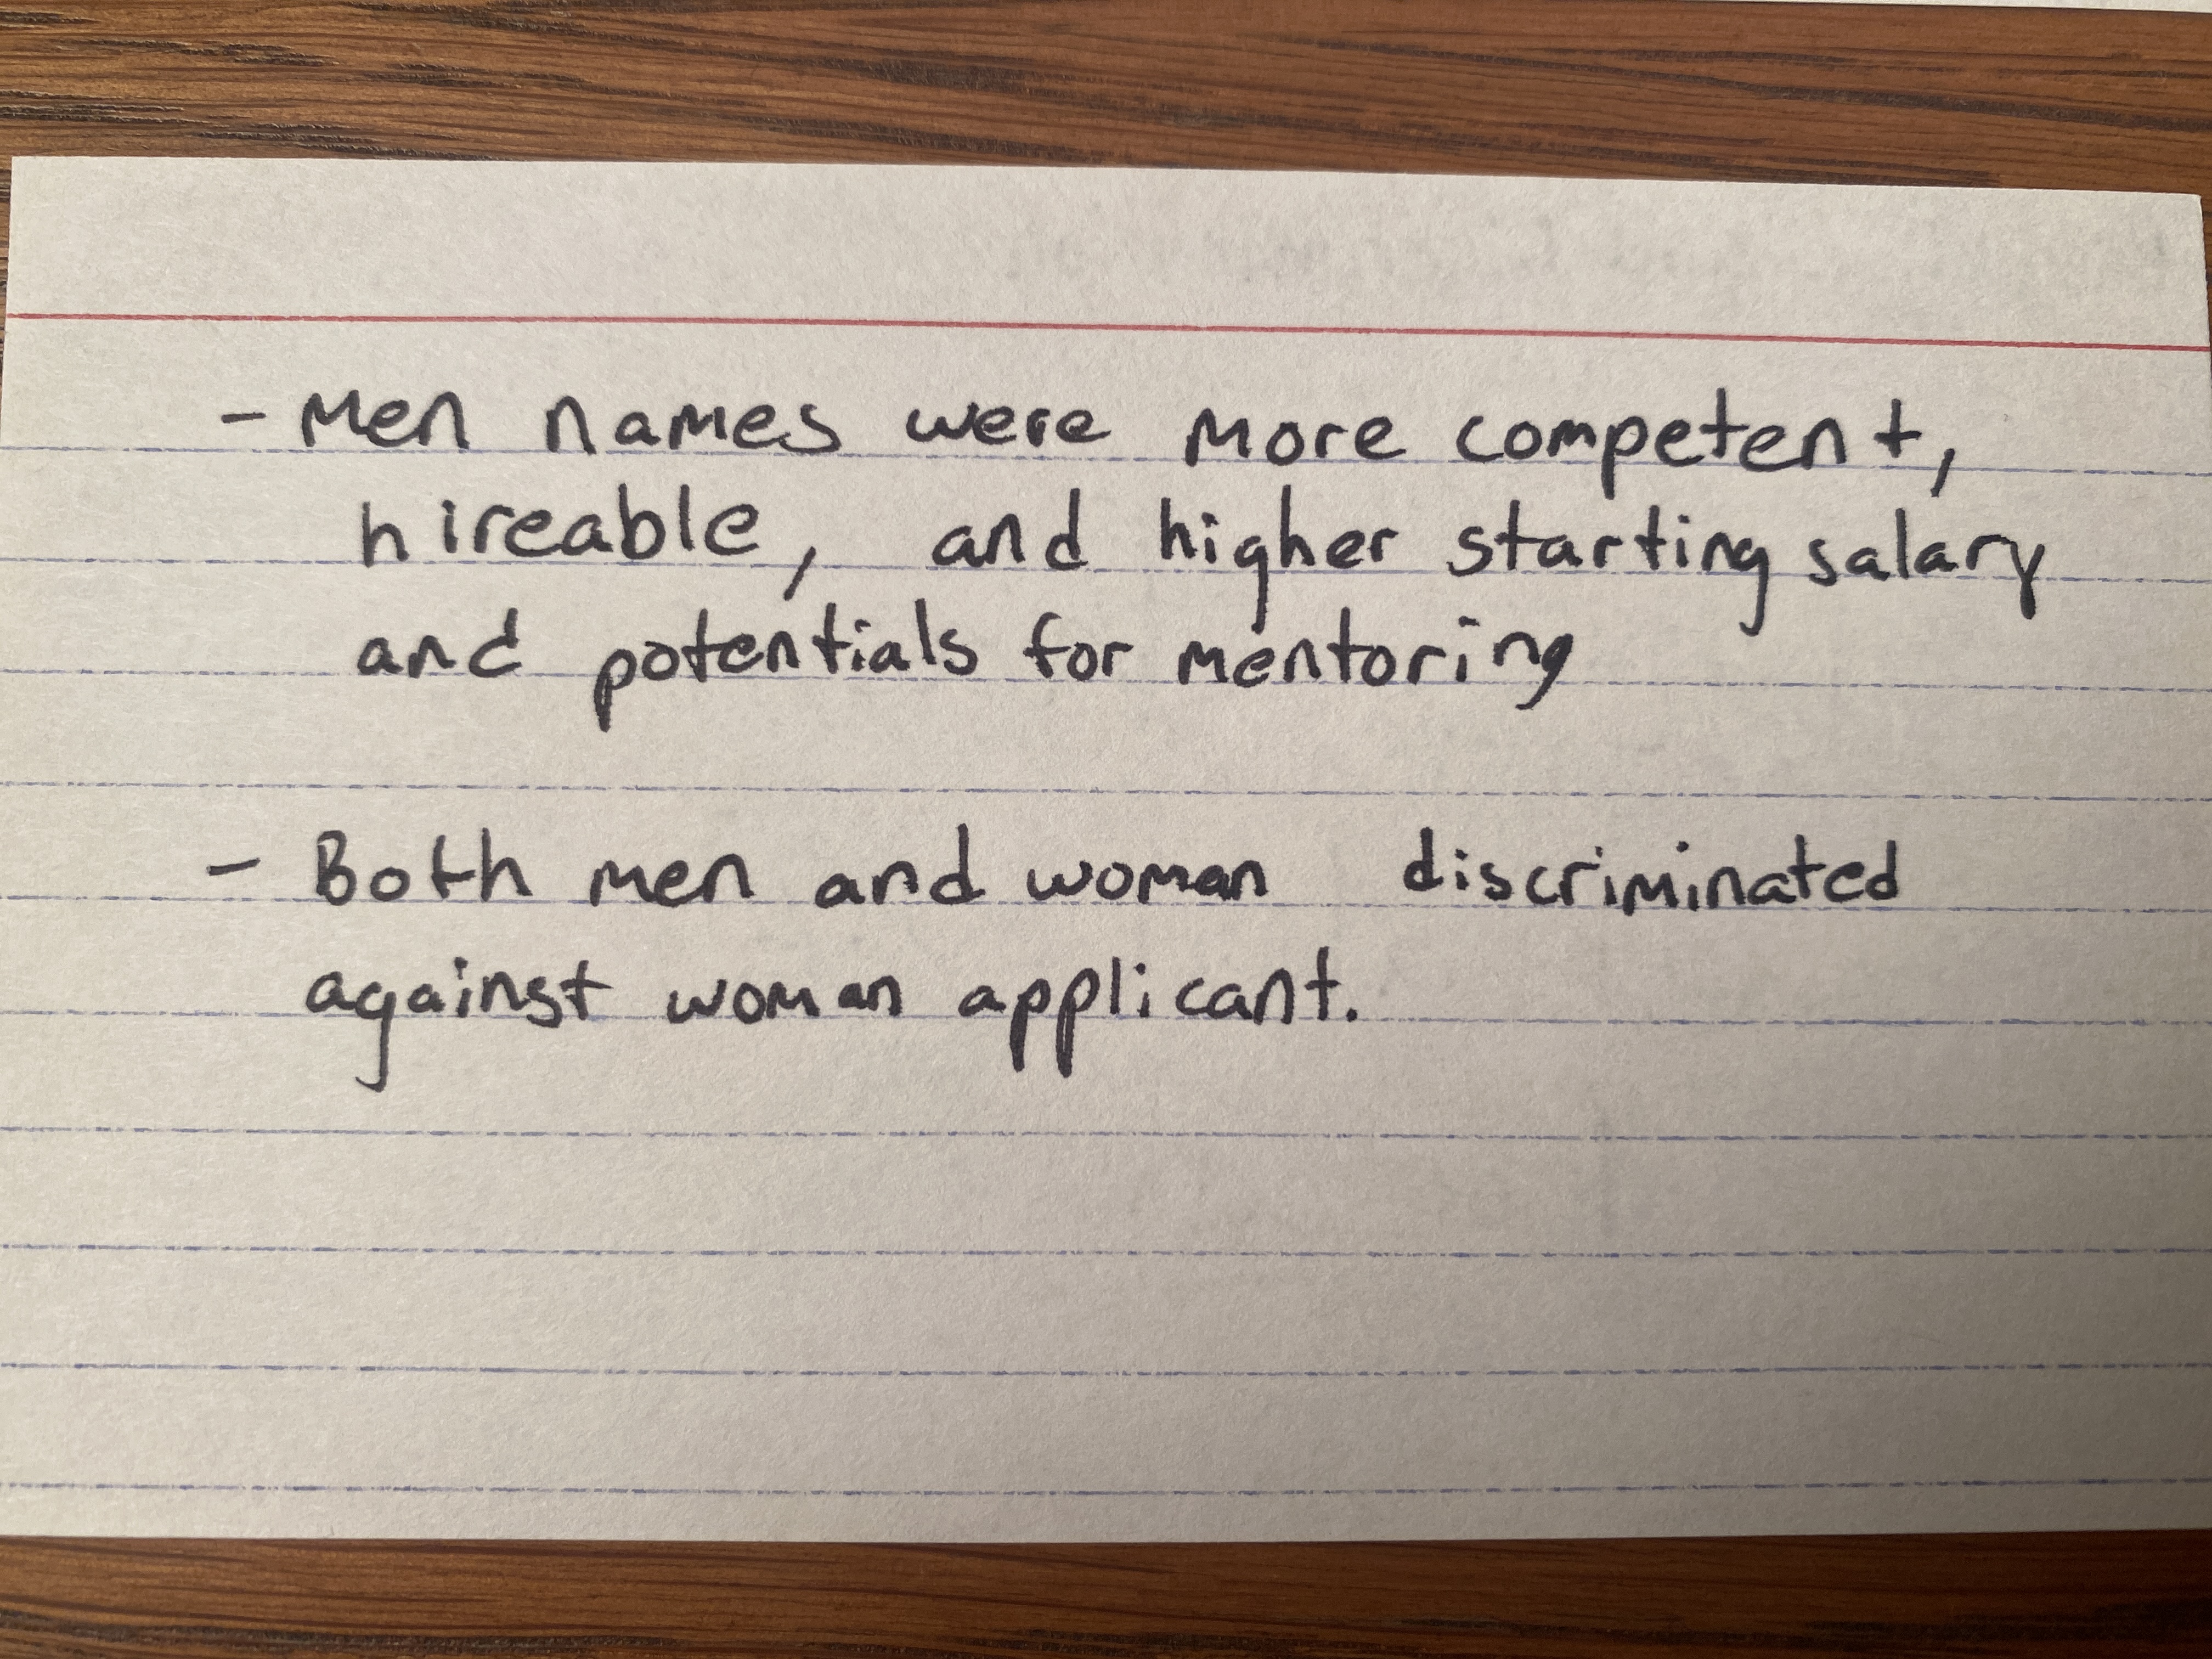 - Men names were more competent,
hireable, and higher starting salary
and potentials for mentoring
- Both men and woman discriminated
against woman applicant.